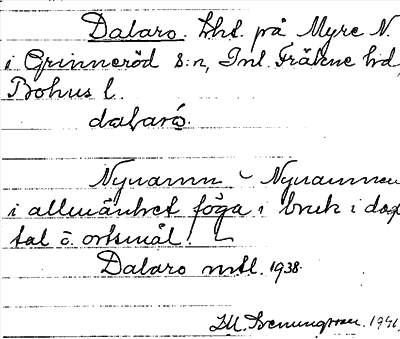 Dalaro. Lht. på Myre N.
i Grinneröd s:n, Inl. Fräkne hd,
Bohus l.
dalaró.
Nynamn ~ Nynamnen
i allmänhet föga i bruk i dag.
tal o. ortsmål.
Dalaro mtl. 1938.
1941